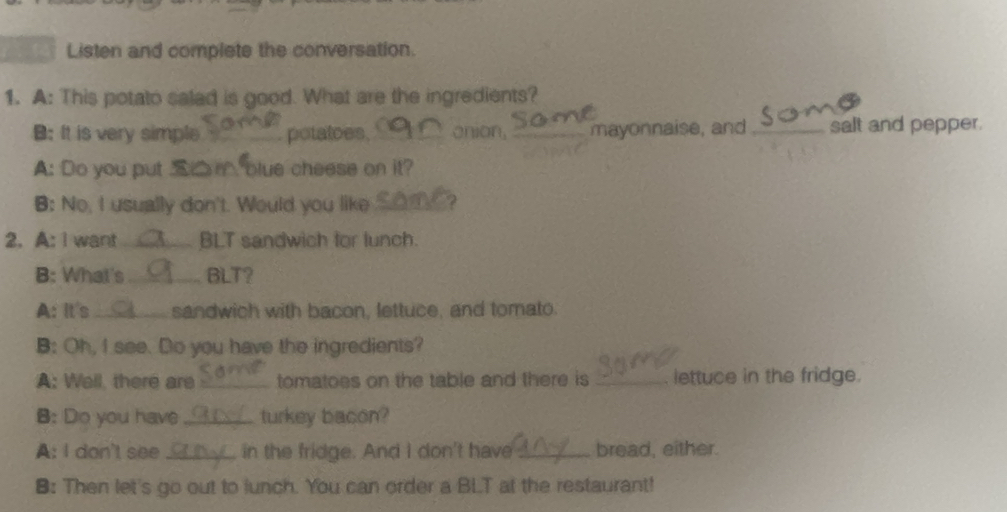 Listen and complete the conversation.
1. A: This potato salad is good. What are the ingredients?
B: It is very simple some potatoes, an onion, some mayonnaise, and some salt and pepper.
A: Do you put some blue cheese on it?
B: No, I usually don't. Would you like some?
2. A: I want a BLT sandwich for lunch.
B: What's a BLT?
A: It's a sandwich with bacon, lettuce, and tomato.
B: Oh, I see. Do you have the ingredients?
A: Well, there are some tomatoes on the table and there is some lettuce in the fridge.
B: Do you have any turkey bacon?
A: I don't see any in the fridge. And I don't have any bread, either.
B: Then let's go out to lunch. You can order a BLT at the restaurant!